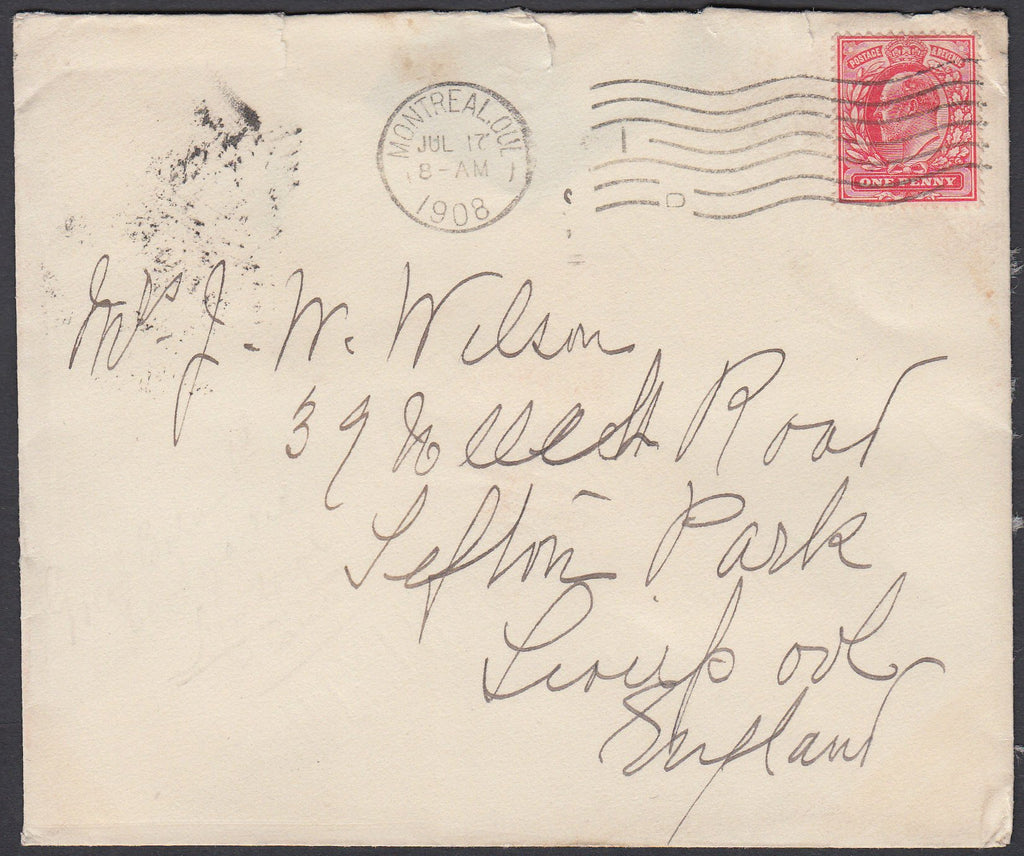 MONTREAL. QUE.
JUL 17
8-AM
1
1908
I
D
POSTAGE & REVENUE
ONE PENNY
Mrs. J. W. Wilson
39 Road
Sefton Park
Liverpool
England